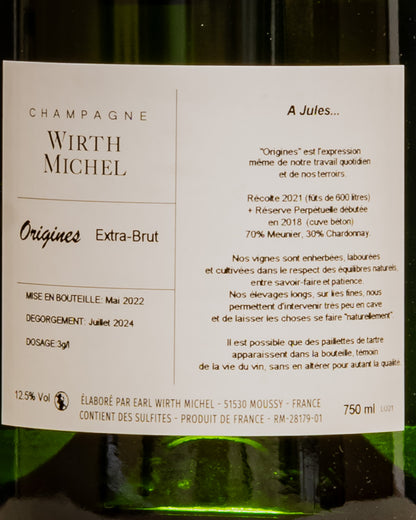 CHAMPAGNE
WIRTH
MICHEL
Origines Extra-Brut
MISE EN BOUTEILLE: Mai 2022
DEGORGEMENT: Juillet 2024
DOSAGE:3g/l
A Jules...
"Origines" est l'expression
même de notre travail quotidien
et de nos terroirs.
Récolte 2021 (fûts de 600 litres)
+ Réserve Perpétuelle débutée
en 2018 (cuve béton)
70% Meunier, 30% Chardonnay.
Nos vignes sont enherbées, labourées
et cultivées dans le respect des équilibres naturels,
entre savoir-faire et patience.
Nos élevages longs, sur lies fines, nous
permettent d'intervenir très peu en cave
et de laisser les choses se faire "naturellement"
Il est possible que des paillettes de tartre
apparaissent dans la bouteille, témoin
de la vie du vin, sans en altérer pour autant la qualité.
12.5% Vol
ÉLABORÉ PAR EARL WIRTH MICHEL - 51530 MOUSSY - FRANCE
CONTIENT DES SULFITES - PRODUIT DE FRANCE - RM-28179-01
750 ml LU21